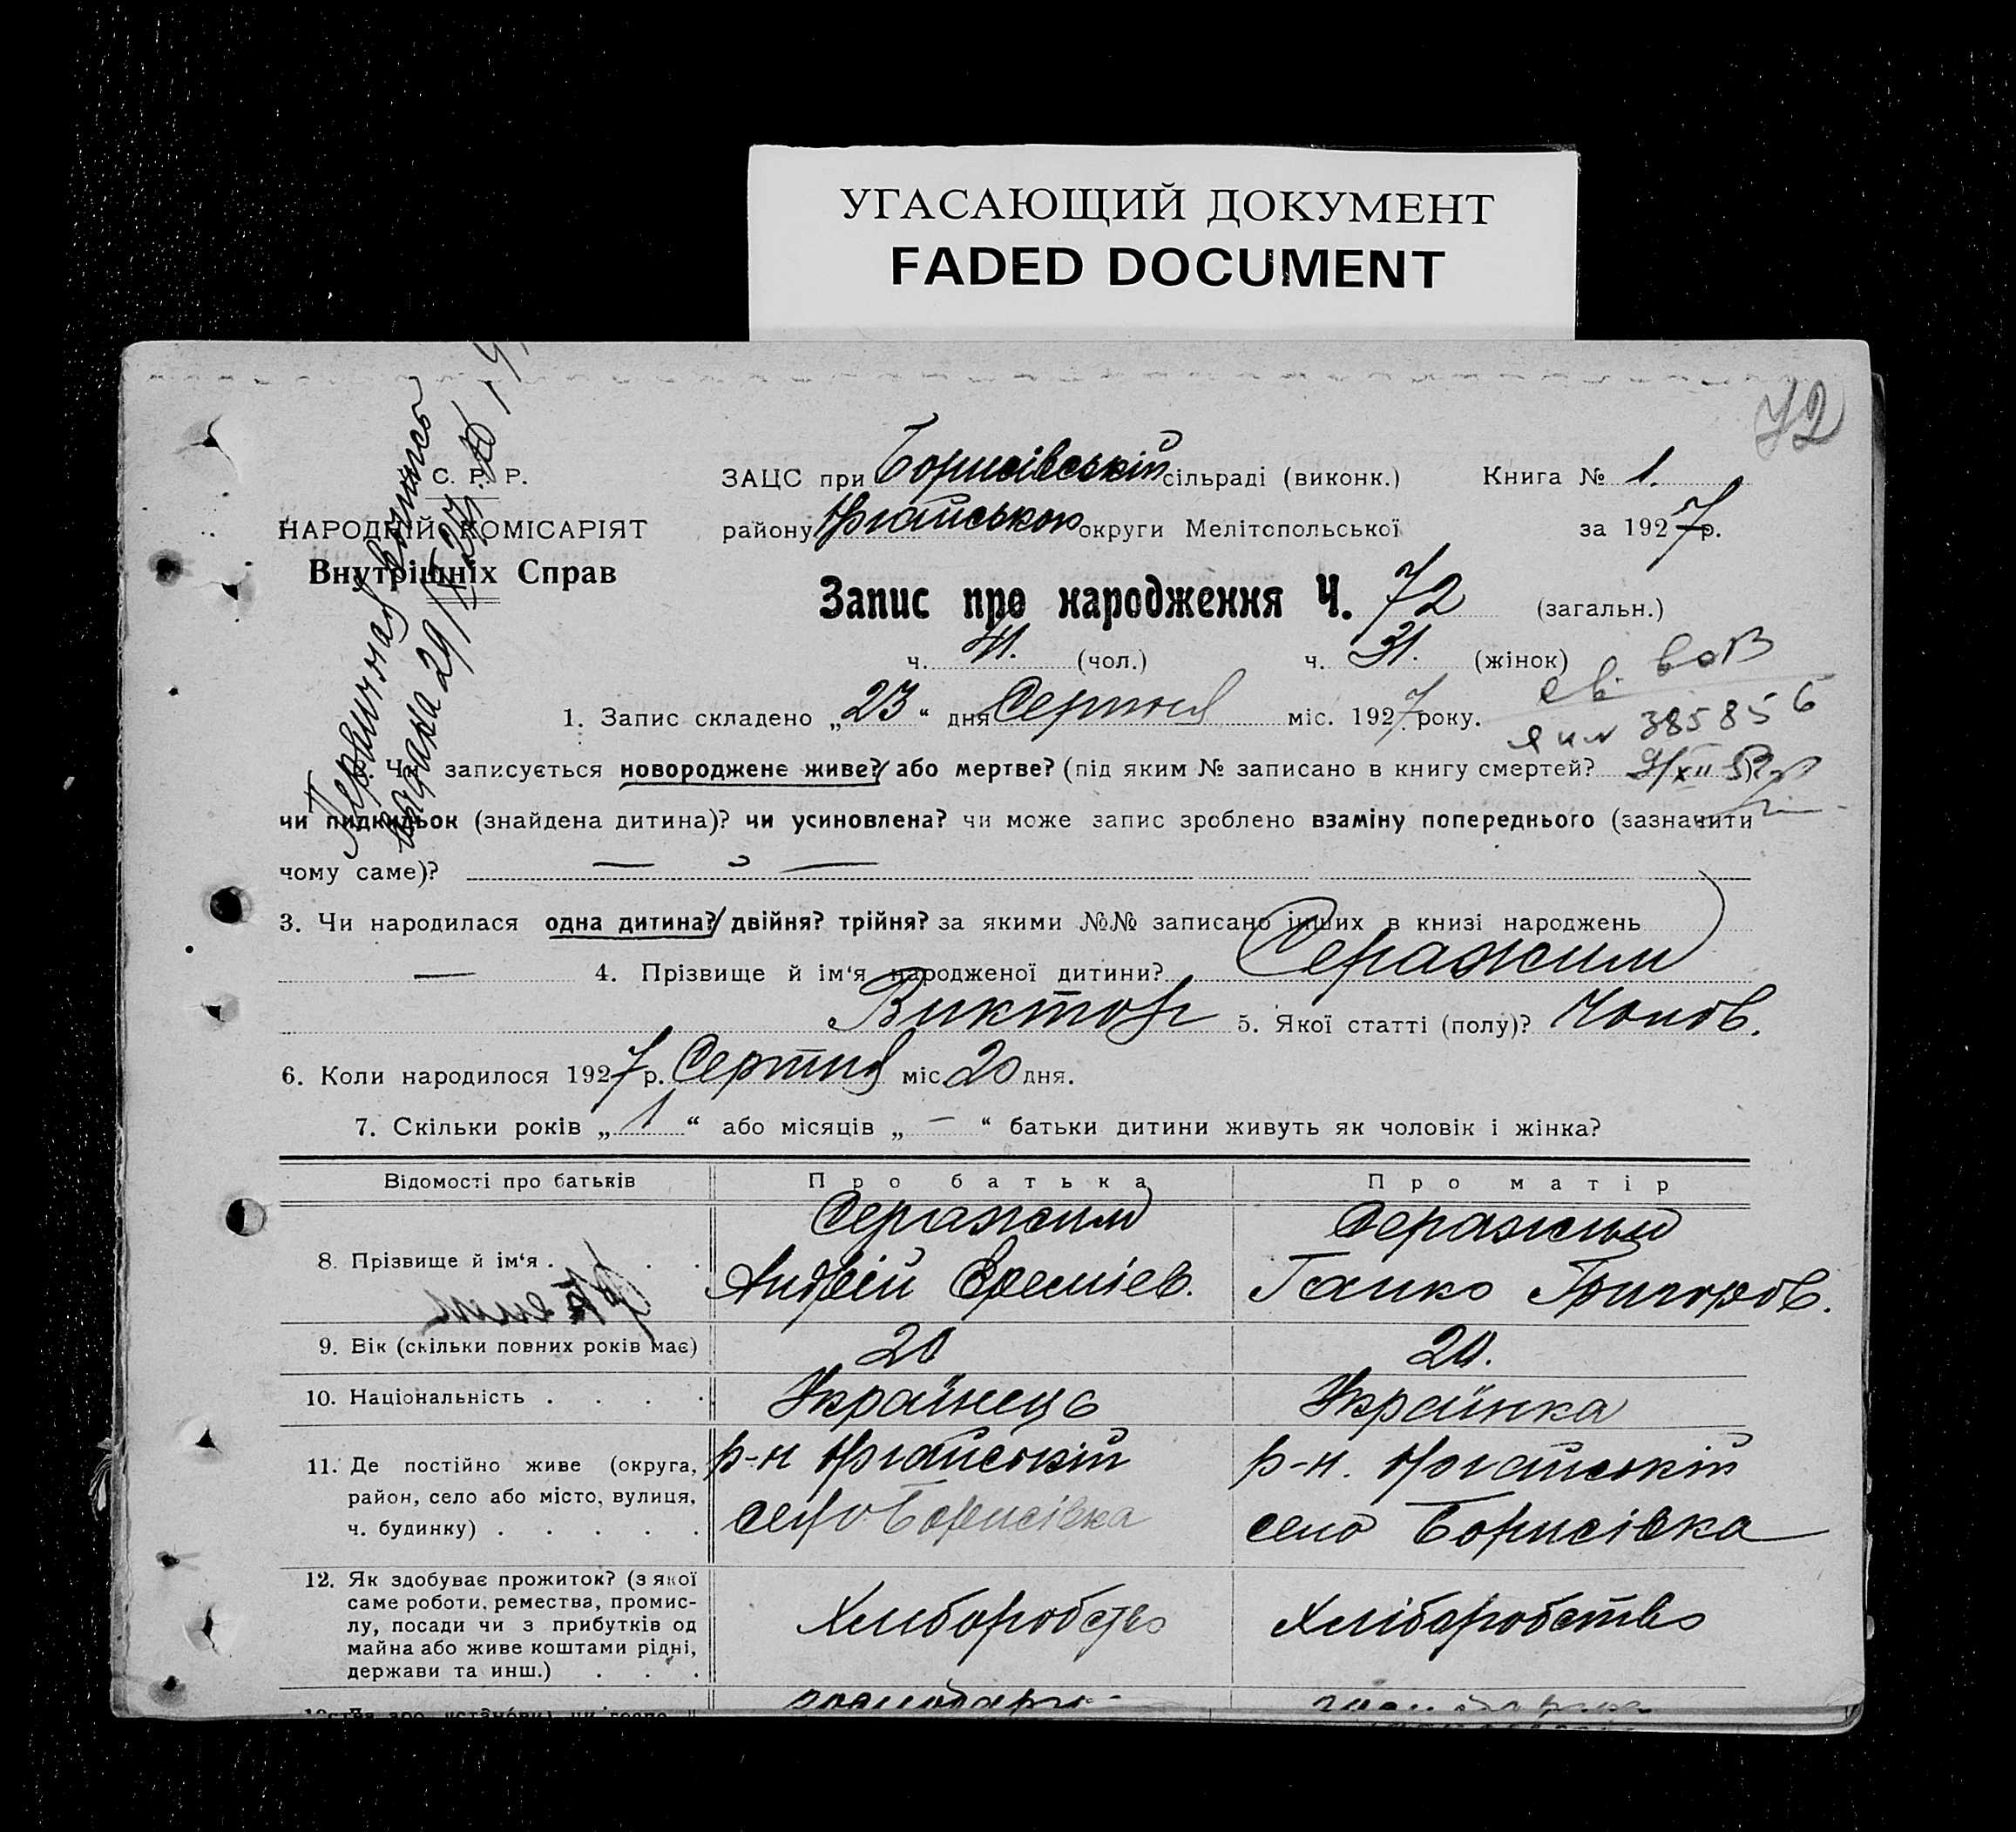 УГАСАЮЩИЙ ДОКУМЕНТ
FADED DOCUMENT
72
С. Р. Р.
НАРОДНІЙ КОМІСАРІЯТ
Внутрішніх Справ
ЗАЦС при Борисівській сільраді (виконк.) Книга № 1.
району округи Мелітопольської за 1927 р.
Запис про народження Ч. 72 (загальн.)
ч. 41. (чол.) ч. 31. (жінок)
1. Запис складено „23“ дня Серпня міс. 1927 року.
385856
Чи записується новороджене живе? або мертве? (під яким № записано в книгу смертей?
чи пидкидьок (знайдена дитина)? чи усиновлена? чи може запис зроблено взаміну попереднього (зазначити
чому саме)?
3. Чи народилася одна дитина? двійня? трійня? за якими №№ записано інших в книзі народжень
— 4. Прізвище й ім‘я народженої дитини? Серажим
Виктор 5. Якої статті (полу)? Чолов.
6. Коли народилося 1927 р. Серпня міс 20 дня.
7. Скільки років „1“ або місяців „—“ батьки дитини живуть як чоловік і жінка?
Відомості про батьків Про батька Про матір
8. Прізвище й ім‘я . . . . Серажим Андрій Еремієв. Серажим Ганко Григоров.
9. Вік (скільки повних років має) 20 20.
10. Національність . . . . Українець Українка
11. Де постійно живе (округа, р-н р-н.
район, село або місто, вулиця, село Борисівка село Борисівка
ч. будинку) . . . . .
12. Як здобуває прожиток? (з якої
саме роботи, ремества, промис-
лу, посади чи з прибутків од Хлиборобство Хліборобство
майна або живе коштами рідні,
держави та инш.) . . .